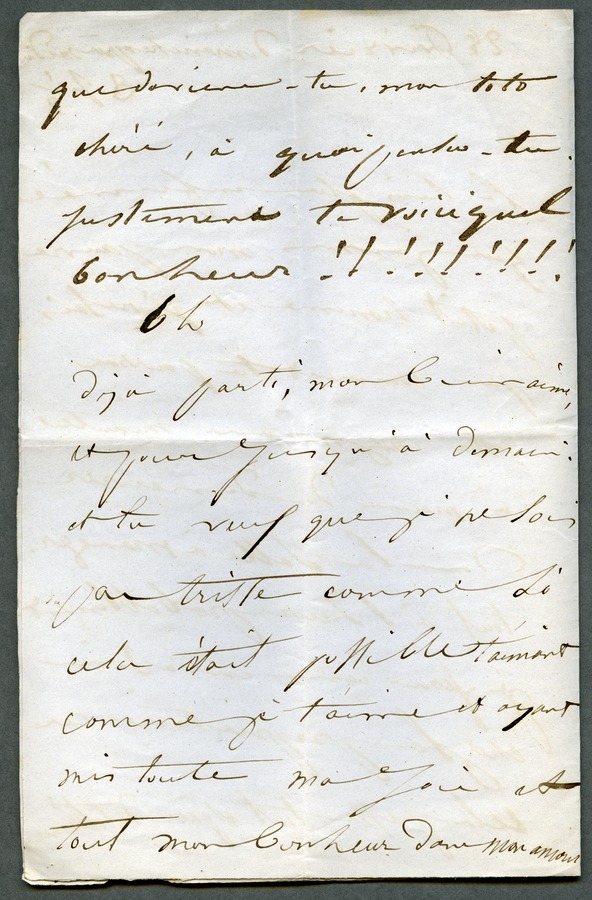 que deviens-tu, mon toto
chéri, à quoi penses-tu
justement te voici quel
bonheur !! !!!! !!!!
6 h
Déjà parti, mon bien aimé,
et pour jusqu'à demain.
et tu veux que je ne sois
pas triste comme si
cela était possible t'aimant
comme je t'aime et ayant
mis toute ma joie et
tout mon bonheur dans mon amour